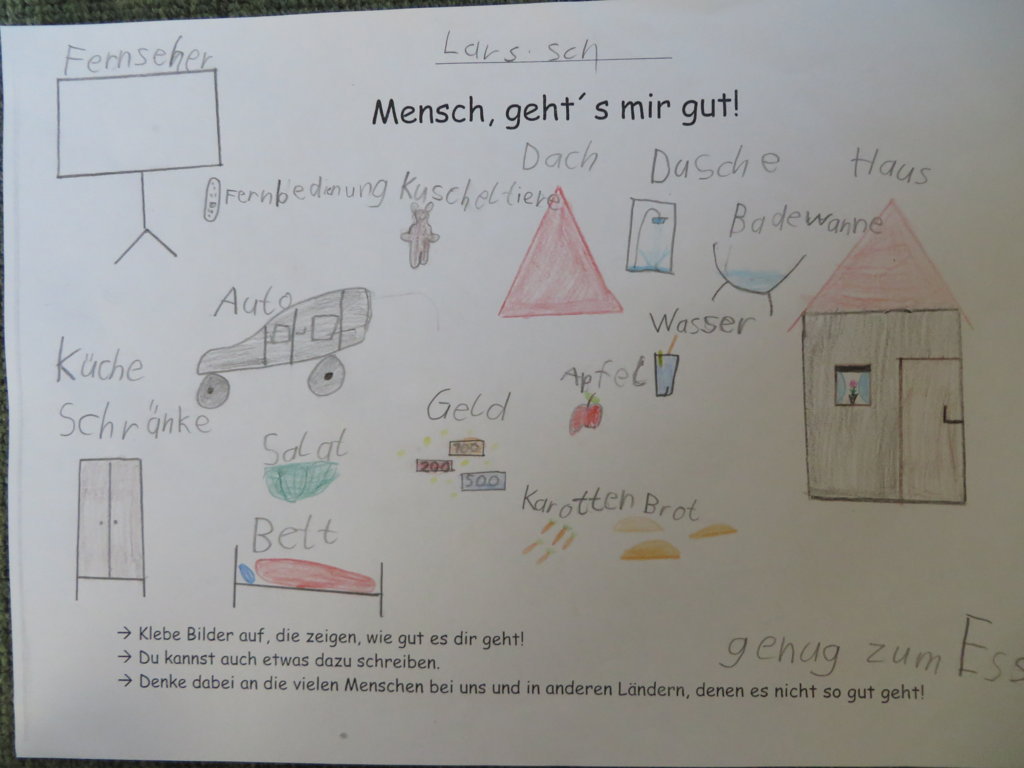 Lars. sch
Fernseher
Mensch, geht´s mir gut!
Dach
Dusche
Haus
Fernbedienung
Kuscheltiere
Badewanne
Auto
Wasser
Küche
Apfel
Schränke
Geld
Salat
100
200
500
Karotten
Brot
Bett
→ Klebe Bilder auf, die zeigen, wie gut es dir geht!
→ Du kannst auch etwas dazu schreiben.
→ Denke dabei an die vielen Menschen bei uns und in anderen Ländern, denen es nicht so gut geht!
genug zum Ess